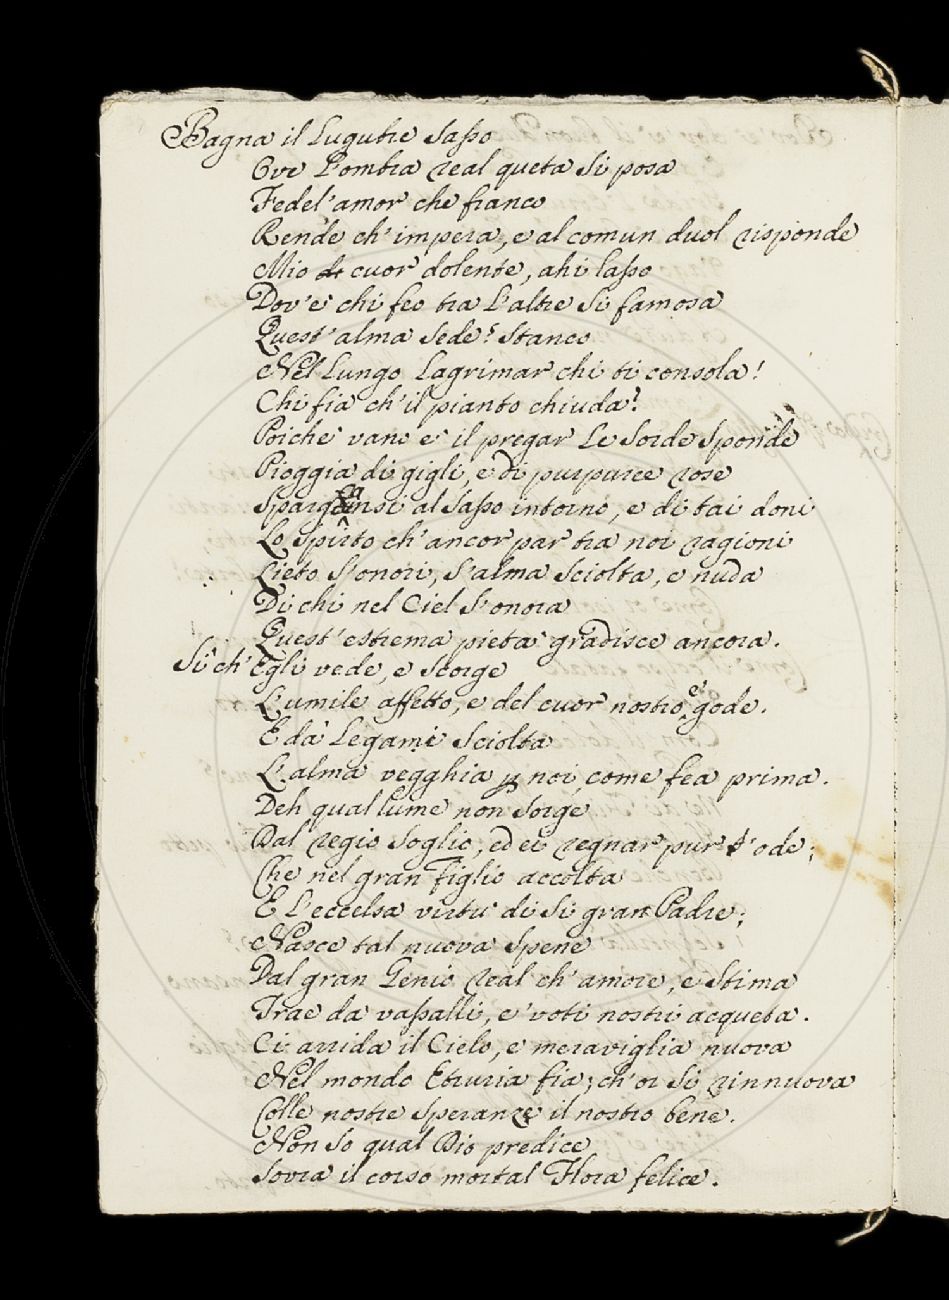 Bagna il Lugubre Sasso
Ove L'ombra real queta Si posa
Fedel'amor che franco
Rende ch'impera, e al comun duol risponde
Mio cuor dolente, ahi lasso
Dov'e' chi feo tra L'altre Si famosa
Quest'alma Sede? Stanco
Nel Lungo Lagrimar chi ti consola!
Chi fia ch'il pianto chiuda?
Poiche vano e' il pregar Le Sorde Sponde
Pioggia di gigli, e di purpuree rose
Spargansi al Sasso intorno, e di tai doni
Lo Spirto ch'ancor par tra noi ragioni
Lieto S'onori, S'alma Sciolta, e nuda
Di chi nel Ciel S'onora
Quest'estrema pieta' gradisce ancora.
Si ch'Egli vede, e Scorge
L'umile affetto, e del cuor nostro e' gode.
E da Legami Sciolta
L'alma vegghia p noi, come fea prima.
Deh qual lume non Sorge
Dal regio Soglio, ed ei regnar pur s'ode;
Che nel gran Figlio accolta
E' L'eccelsa virtu' di Si gran Padre;
Nasce tal nuova Spene
Dal gran Genio real ch'amore, e Stima
Trae da vassalli, e' voti nostri acqueta.
Ci arrida il Cielo, e meraviglia nuova
Nel mondo Etruria fia; ch'or Si rinnuova
Colle nostre Speranze il nostro bene.
Non So qual Dio predice
Sovra il corso mortal Flora felice.